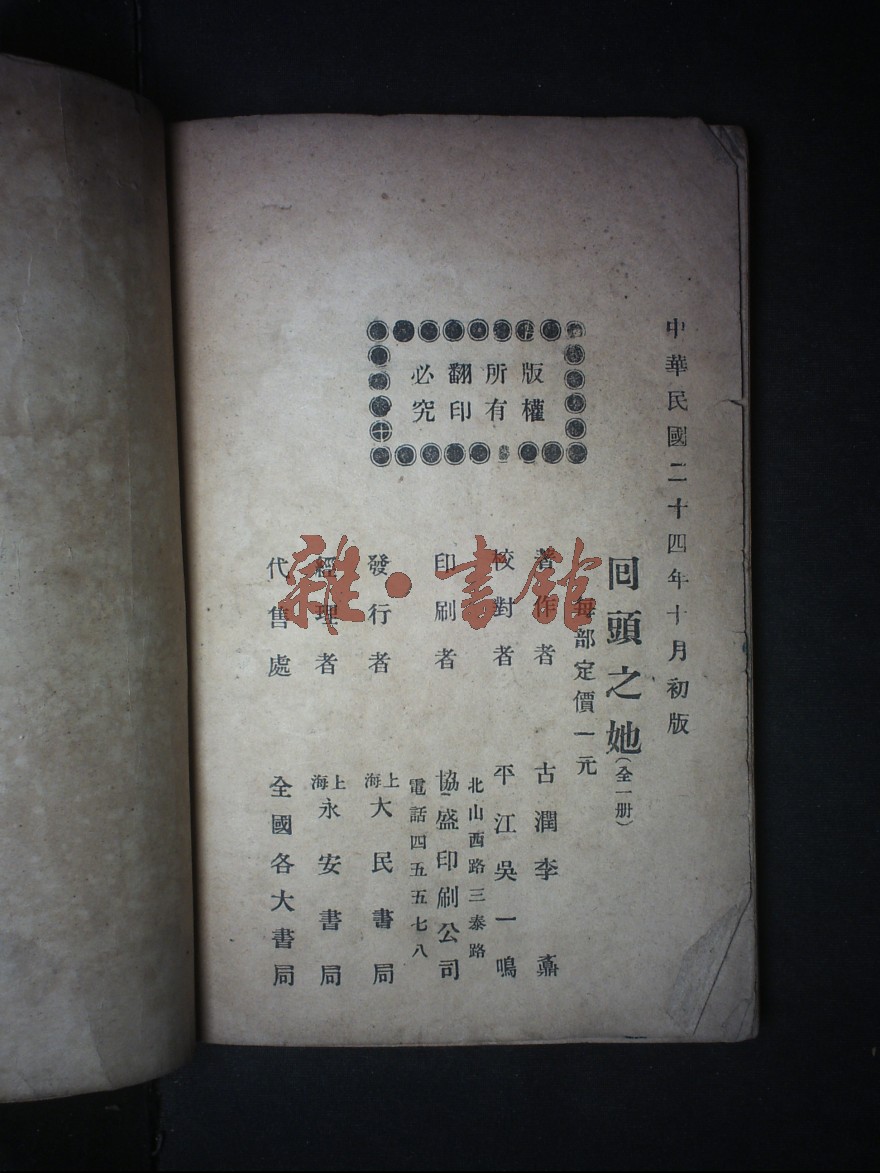 中華民國二十四年十月初版
回頭之她(全一册)
每部定價一元
版權
所有
翻印
必究
著作者 古潤李 纛
校對者 平江吳一鳴
印刷者 北山西路三泰路
協盛印刷公司
電話四五五七八
發行者 上海大民書局
經理者 上海永安書局
代售處 全國各大書局
雜·書館